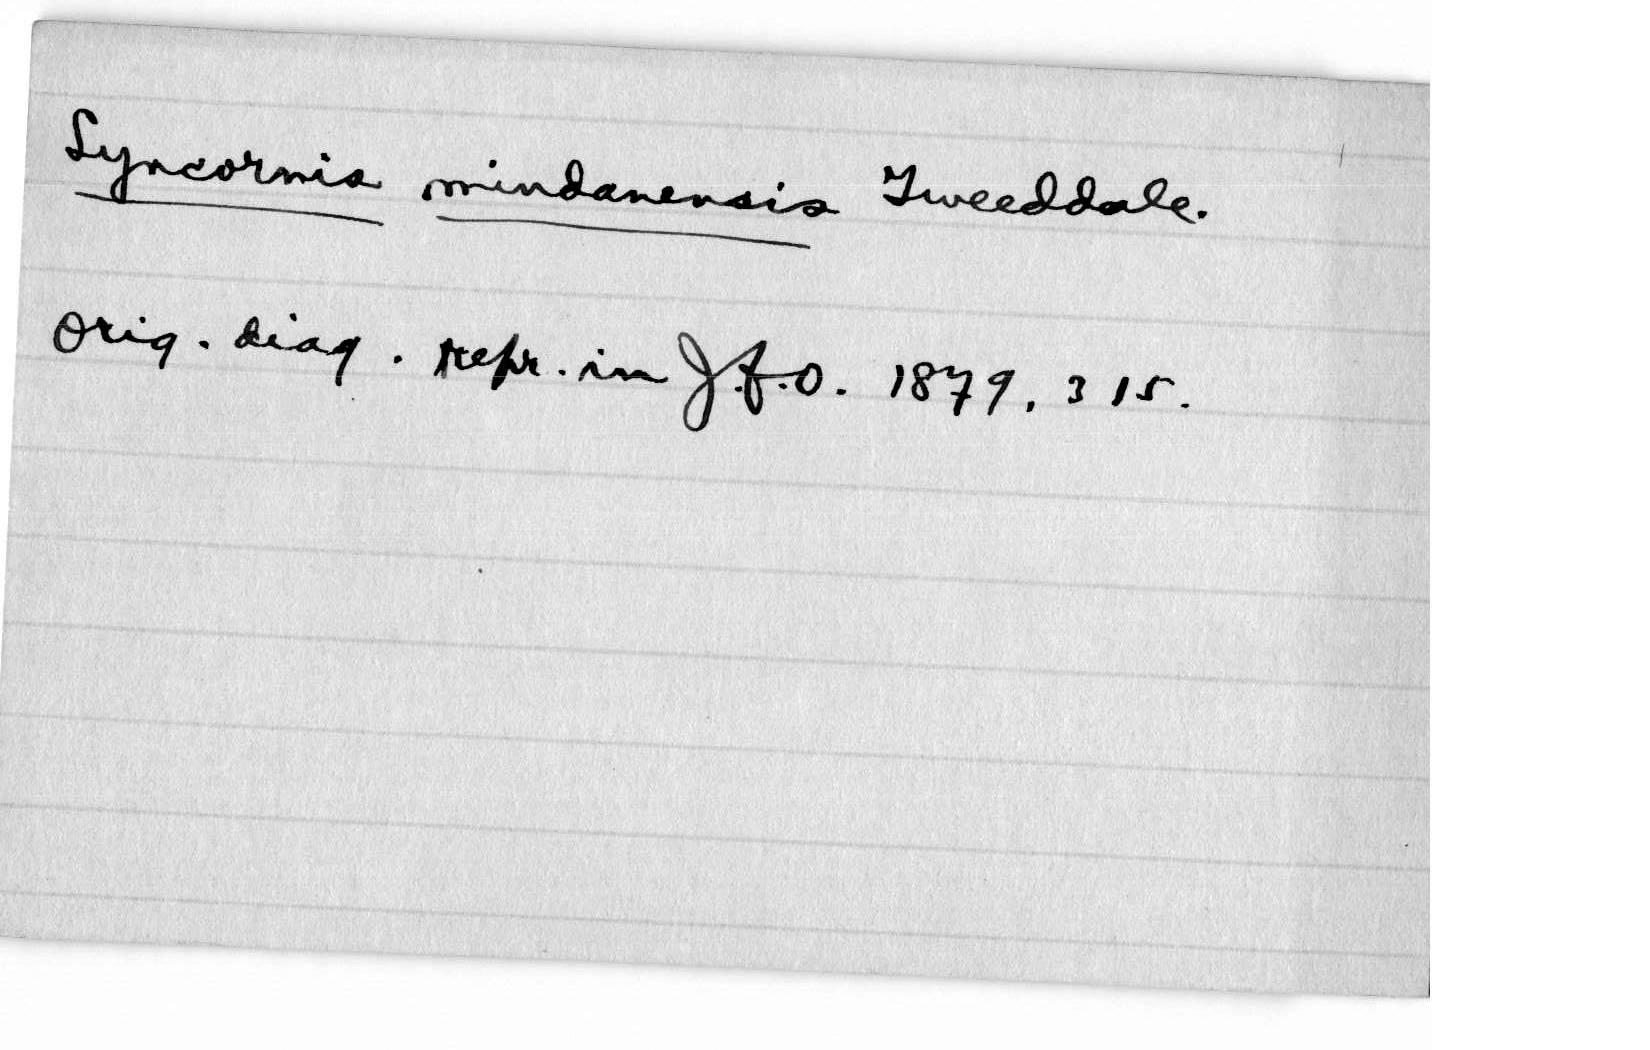 Lyncornis mindanensis Tweeddale.
Orig. diag. repr. in J.f.O. 1879, 315.